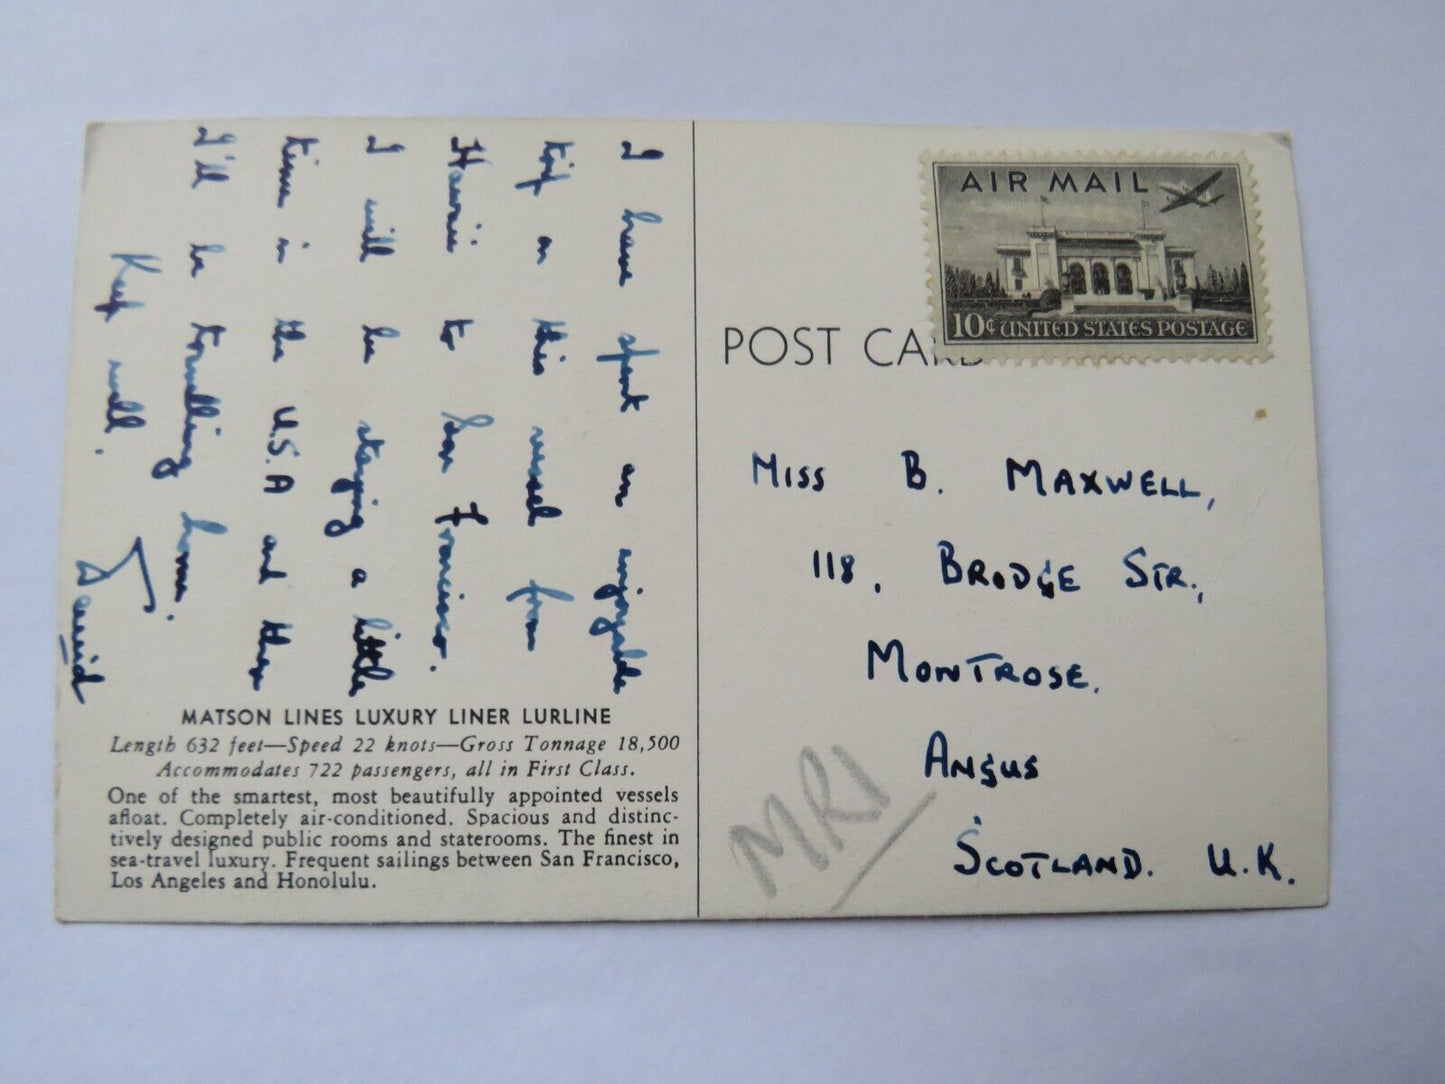 I have spent an enjoyable
trip on this vessel from
Hawaii to San Francisco.
I will be staying a little
time in the U.S.A and then
I'll be travelling home.
Keep well.
David
MATSON LINES LUXURY LINER LURLINE
Length 632 feet—Speed 22 knots—Gross Tonnage 18,500
Accommodates 722 passengers, all in First Class.
One of the smartest, most beautifully appointed vessels
afloat. Completely air-conditioned. Spacious and distinc-
tively designed public rooms and staterooms. The finest in
sea-travel luxury. Frequent sailings between San Francisco,
Los Angeles and Honolulu.
AIR MAIL
10¢ UNITED STATES POSTAGE
POST CARD
MISS B. MAXWELL,
118, BRIDGE STR.,
MONTROSE.
ANGUS
SCOTLAND. U.K.
MR1